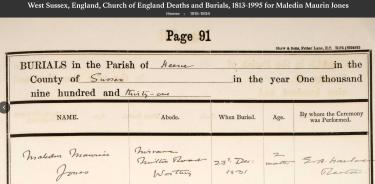 West Sussex, England, Church of England Deaths and Burials, 1813-1995 for Maledin Maurin Jones
Heene > 1915-1934
Page 91
BURIALS in the Parish of Heene in the
County of Sussex in the year One thousand
nine hundred and thirty-one
NAME. Abode. When Buried. Age. By whom the Ceremony was Performed.
Jones
Road
Worthing
23rd Dec:
1931
2
Rector